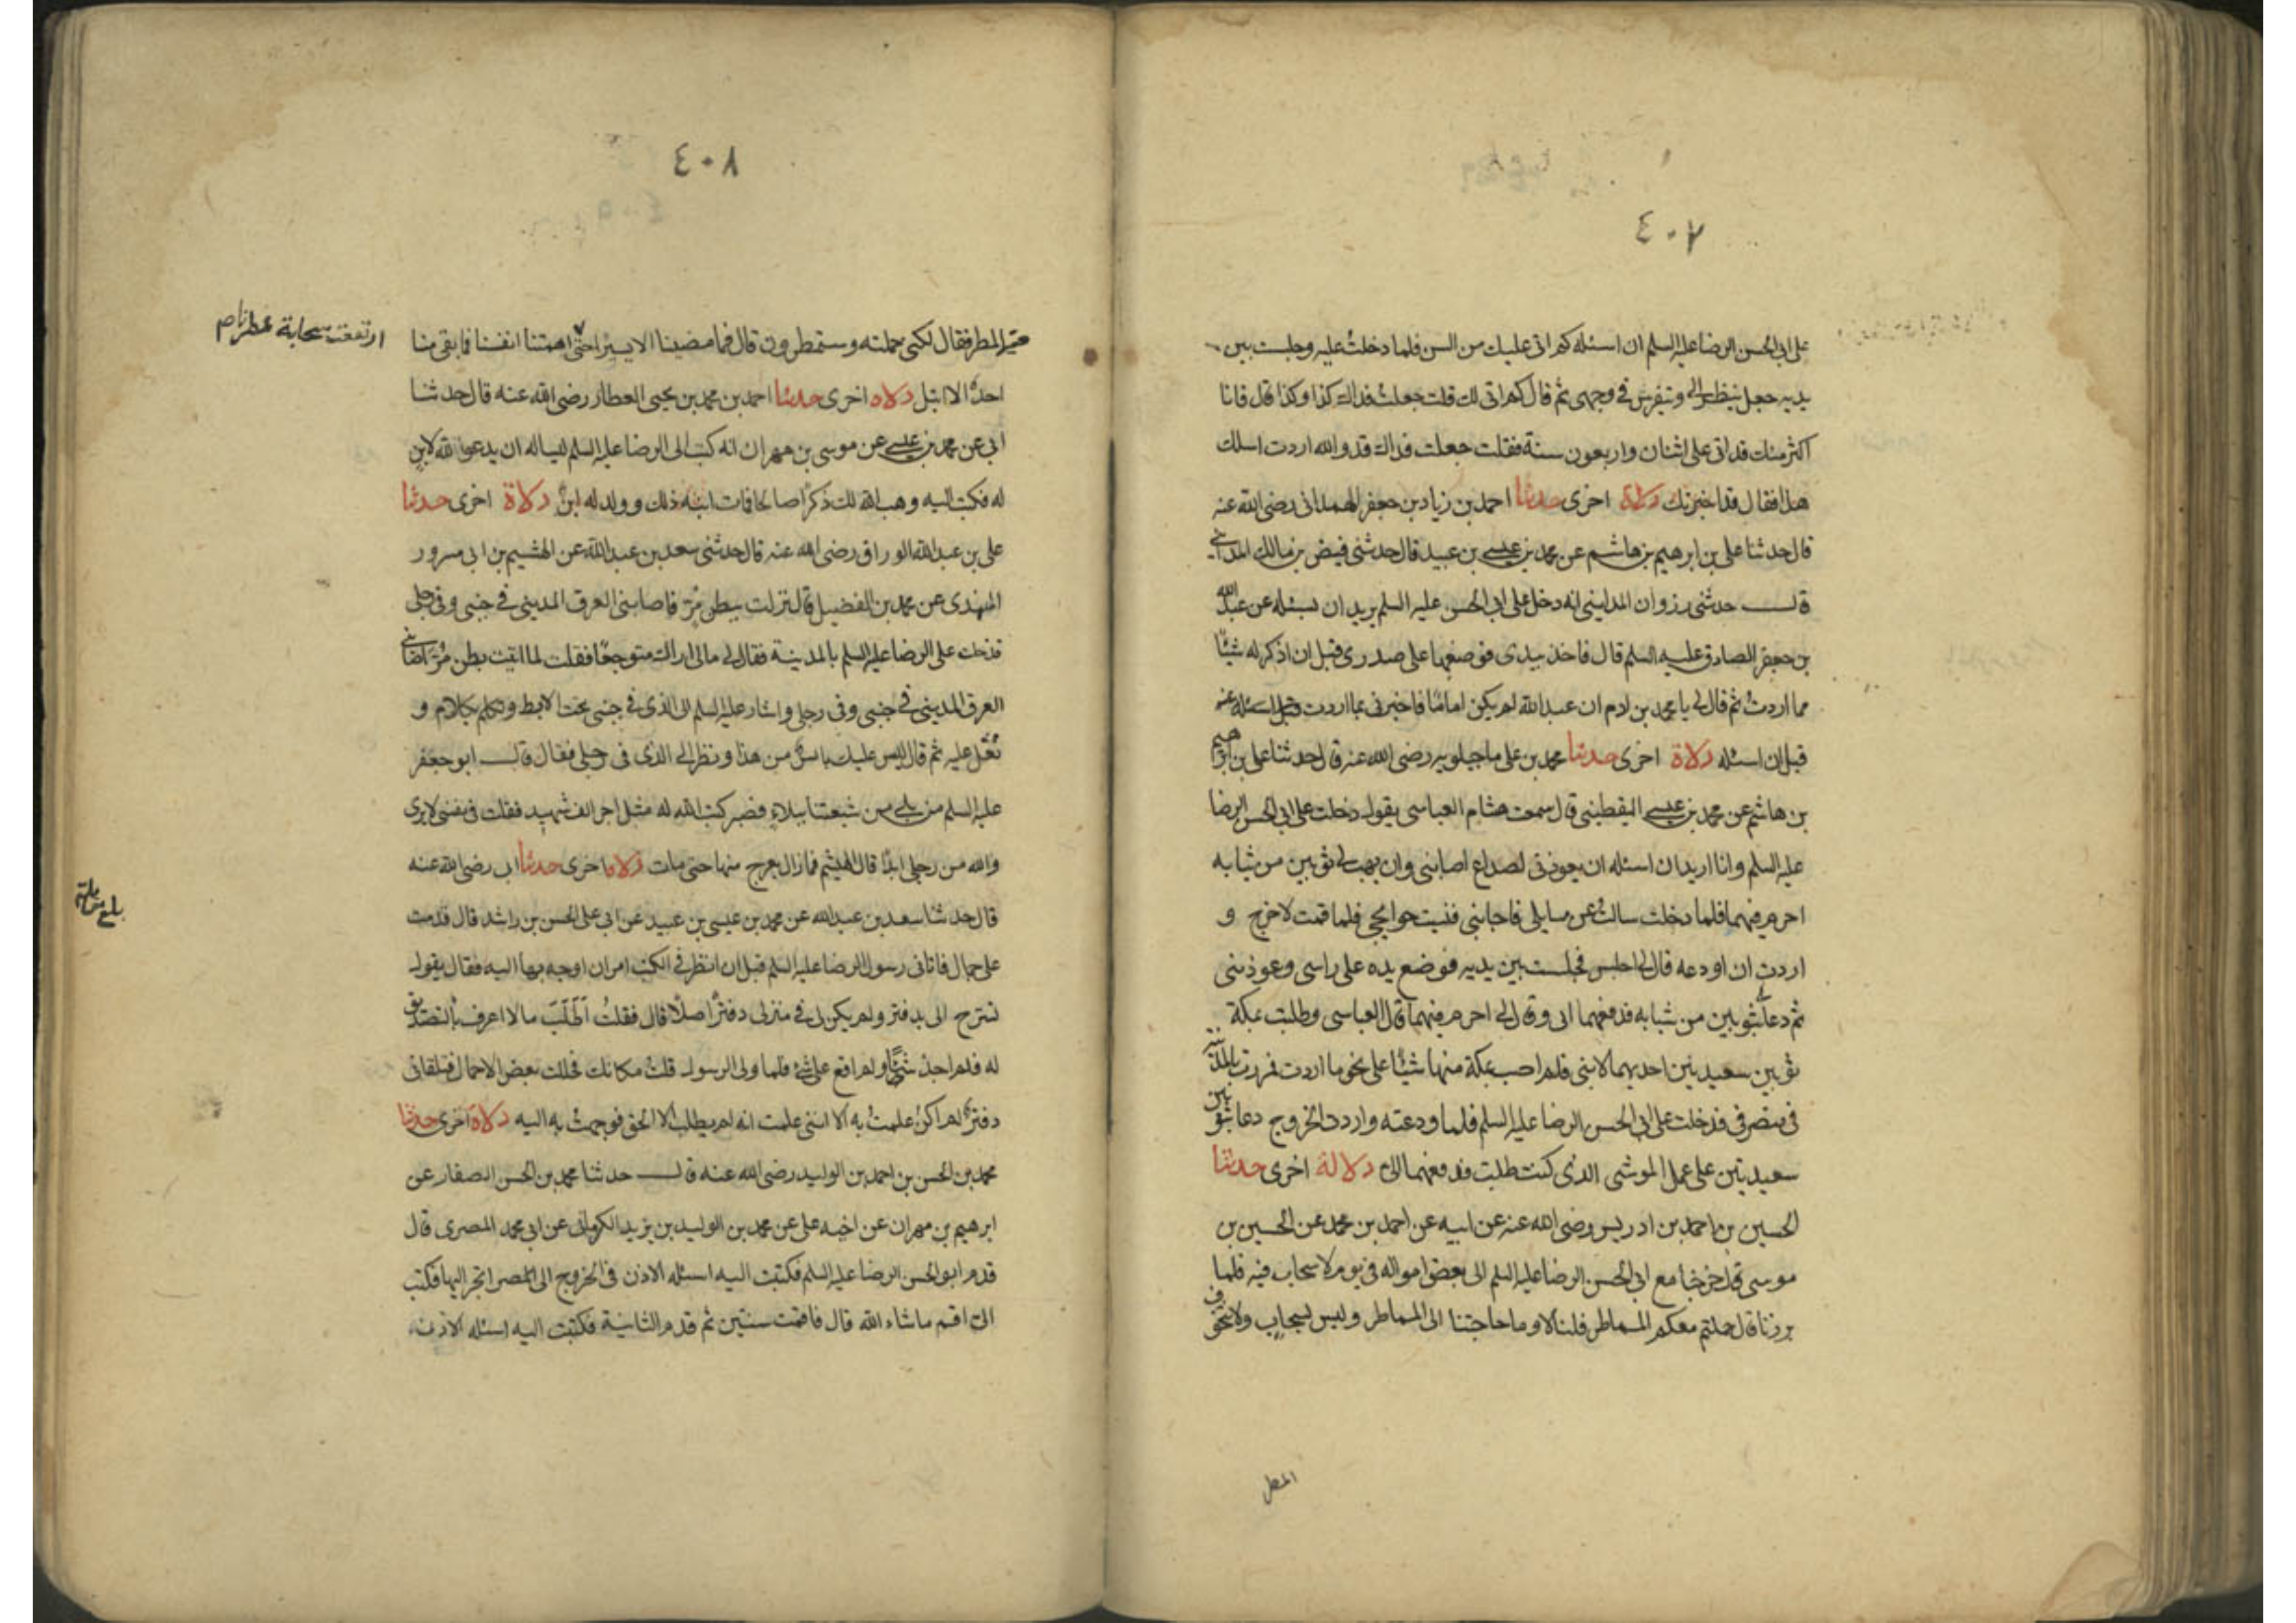 ٤٠٧
على ابى الحسن الرضا عليه السلم ان اسئله كم اتى عليك من السن فلما دخلت عليه وجلست بين
يديه جعل ينظر الى ويتفرس فى وجهى ثم قال كم اتى لك قلت جعلت فداك كذا وكذا قال فانا
اكثر منك قد اتى على اثنان واربعون سنة فقلت جعلت فداك قد والله اردت اسلك
هذا فقال قد اخبرتك دلالة اخرى حدثنا احمد بن زياد بن جعفر الهمدانى رضى الله عنه
قال حدثنا على بن ابرهيم بن هاشم عن محمد بن عيسى بن عبيد قال حدثنى فيض بن مالك المداينى
قال حدثنى رزوان المداينى انه دخل على ابى الحسن عليه السلم يريد ان يسئله عن عبد الله
بن جعفر الصادق عليه السلم قال فاخذ بيدى فوضعها على صدرى قبل ان اذكر له شيئا
مما اردت ثم قال لى يا محمد بن ادم ان عبد الله لم يكن اماما فاخبرنى بما اردت قبل اسئله عنه
قبل ان اسئله دلالة اخرى حدثنا محمد بن على ماجيلويه رضى الله عنه قال حدثنا على بن ابرهيم
بن هاشم عن محمد بن عيسى اليقطينى قال سمعت هشام العباسى يقول دخلت على ابى الحسن الرضا
عليه السلم وانا اريد ان اسئله ان يعوذنى لصداع اصابنى وان يهب لى ثوبين من ثيابه
احرم فيهما فلما دخلت سالت عن مسايلى فاجابنى فنسيت حوايجى فلما قمت لاخرج و
اردت ان اودعه قال لى اجلس فجلست بين يديه فوضع يده على راسى وعوذنى
ثم دعا بثوبين من ثيابه فدفعهما الى وقال لى احرم فيهما قال العباسى وطلبت بمكة
ثوبين سعيديين احديهما لابنى فلم اصب بمكة منها شيئا على نحو ما اردت فمررت بالمدينة
فى منصرفى فدخلت على ابى الحسن الرضا عليه السلم فلما ودعته واردت الخروج دعا بثوبين
سعيديين على عمل الموشى الذى كنت طلبت فدفعهما الى دلالة اخرى حدثنا
الحسين بن احمد بن ادريس رضى الله عنه عن ابيه عن احمد بن محمد عن الحسين بن
موسى قال خرجنا مع ابى الحسن الرضا عليه السلم الى بعض امواله فى يوم لا سحاب فيه فلما
برزنا قال حملتم معكم المماطر قلنا لا وما حاجتنا الى المماطر وليس سحاب ولا نتخوف
المطر
٤٠٨
المطر فقال لكنى حملته وستمطرون قال فما مضينا الا يسيرا حتى اهمتنا انفسنا فما بقى منا
ارتفعت سحابة
احد الا ابتل دلالة اخرى حدثنا احمد بن محمد بن يحيى العطار رضى الله عنه قال حدثنا
ابى عن محمد بن عيسى عن موسى بن مهران انه كتب الى الرضا عليه السلم يساله ان يدعو الله لابن
له فكتب اليه وهب الله لك ذكرا صالحا فمات ابنه ذلك وولد له ابن دلالة اخرى حدثنا
على بن عبد الله الوراق رضى الله عنه قال حدثنى سعد بن عبد الله عن الهيثم بن ابى مسرور
النهدى عن محمد بن الفضيل قال نزلت ببطن مر فاصابنى العرق المدينى فى جنبى وفى رجلى
فدخلت على الرضا عليه السلم بالمدينة فقال لى مالى اراك متوجعا فقلت لما اتيت بطن مر اصابنى
العرق المدينى فى جنبى وفى رجلى واشار عليه السلم الى الذى فى جنبى تحت الابط وتكلم بكلام و
تفل عليه ثم قال ليس عليك باس من هذا ونظر الى الذى فى رجلى فقال قال ابو جعفر
عليه السلم من بلى من شيعتنا ببلاء فصبر كتب الله له مثل اجر الف شهيد فقلت فى نفسى لا ابرى
والله من رجلى ابدا قال الهيثم فما زال يعرج منها حتى مات دلالة اخرى حدثنا ابى رضى الله عنه
قال حدثنا سعد بن عبد الله عن محمد بن عيسى بن عبيد عن ابى على الحسن بن راشد قال قدمت
على جمال فاتانى رسول الرضا عليه السلم قبل ان انظر فى الكتب امر ان اوجه بها اليه فقال يقول
لسرح الى بدفتر ولم يكن لى فى منزلى دفتر اصلا قال فقلت اطلب ما لا اعرف بالتصديق
له فلم اجد شيئا ولم اقع على شئ فلما ولى الرسول قلت مكانك فحللت بعض الاحمال فتلقانى
دفتر لم اكن علمت به الا اننى علمت انه لم يطلب الا الحق فوجهت به اليه دلالة اخرى حدثنا
محمد بن الحسن بن احمد بن الوليد رضى الله عنه قال حدثنا محمد بن الحسن الصفار عن
ابرهيم بن مهران عن اخيه على عن محمد بن الوليد بن يزيد الكرمانى عن ابى محمد المصرى قال
قدم ابو الحسن الرضا عليه السلم فكتبت اليه اسئله الاذن فى الخروج الى المصر اتجر اليها فكتب
الى اقم ما شاء الله قال فاقمت سنتين ثم قدم الثانية فكتبت اليه اسئله الاذن